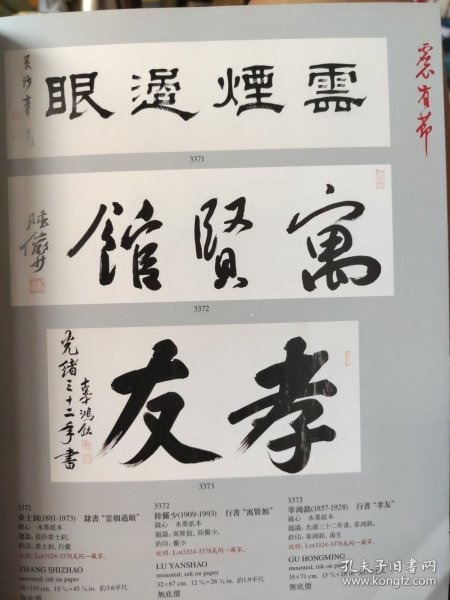 雲煙過眼
長沙章士釗
3371
寓賢館
陸儼少
3372
孝友
光緒三十二年書
辜鴻銘
3373
3371
章士釗(1881-1973) 隸書“雲烟過眼”
鏡心 水墨紙本
題識:長沙章士釗。
鈐印:章士釗、行嚴
說明:Lot3324-3378爲同一藏家。
ZHANG SHIZHAO
mounted; ink on paper
約3.6平尺
無底價
3372
陸儼少(1909-1993) 行書“寓賢館”
鏡心 水墨紙本
題識:寓賢館,陸儼少。
鈐印:儼少
說明:Lot3324-3378爲同一藏家。
LU YANSHAO
mounted; ink on paper
32×67 cm 約1.9平尺
無底價
3373
辜鴻銘(1857-1928) 行書“孝友”
鏡心 水墨紙本
題識:光緒三十二年書,辜鴻銘。
鈐印:辜鴻銘、湯生
說明:Lot3324-3378爲同一藏家。
GU HONGMING
mounted; ink on paper
35×71 cm
無底價
孔夫子旧书网